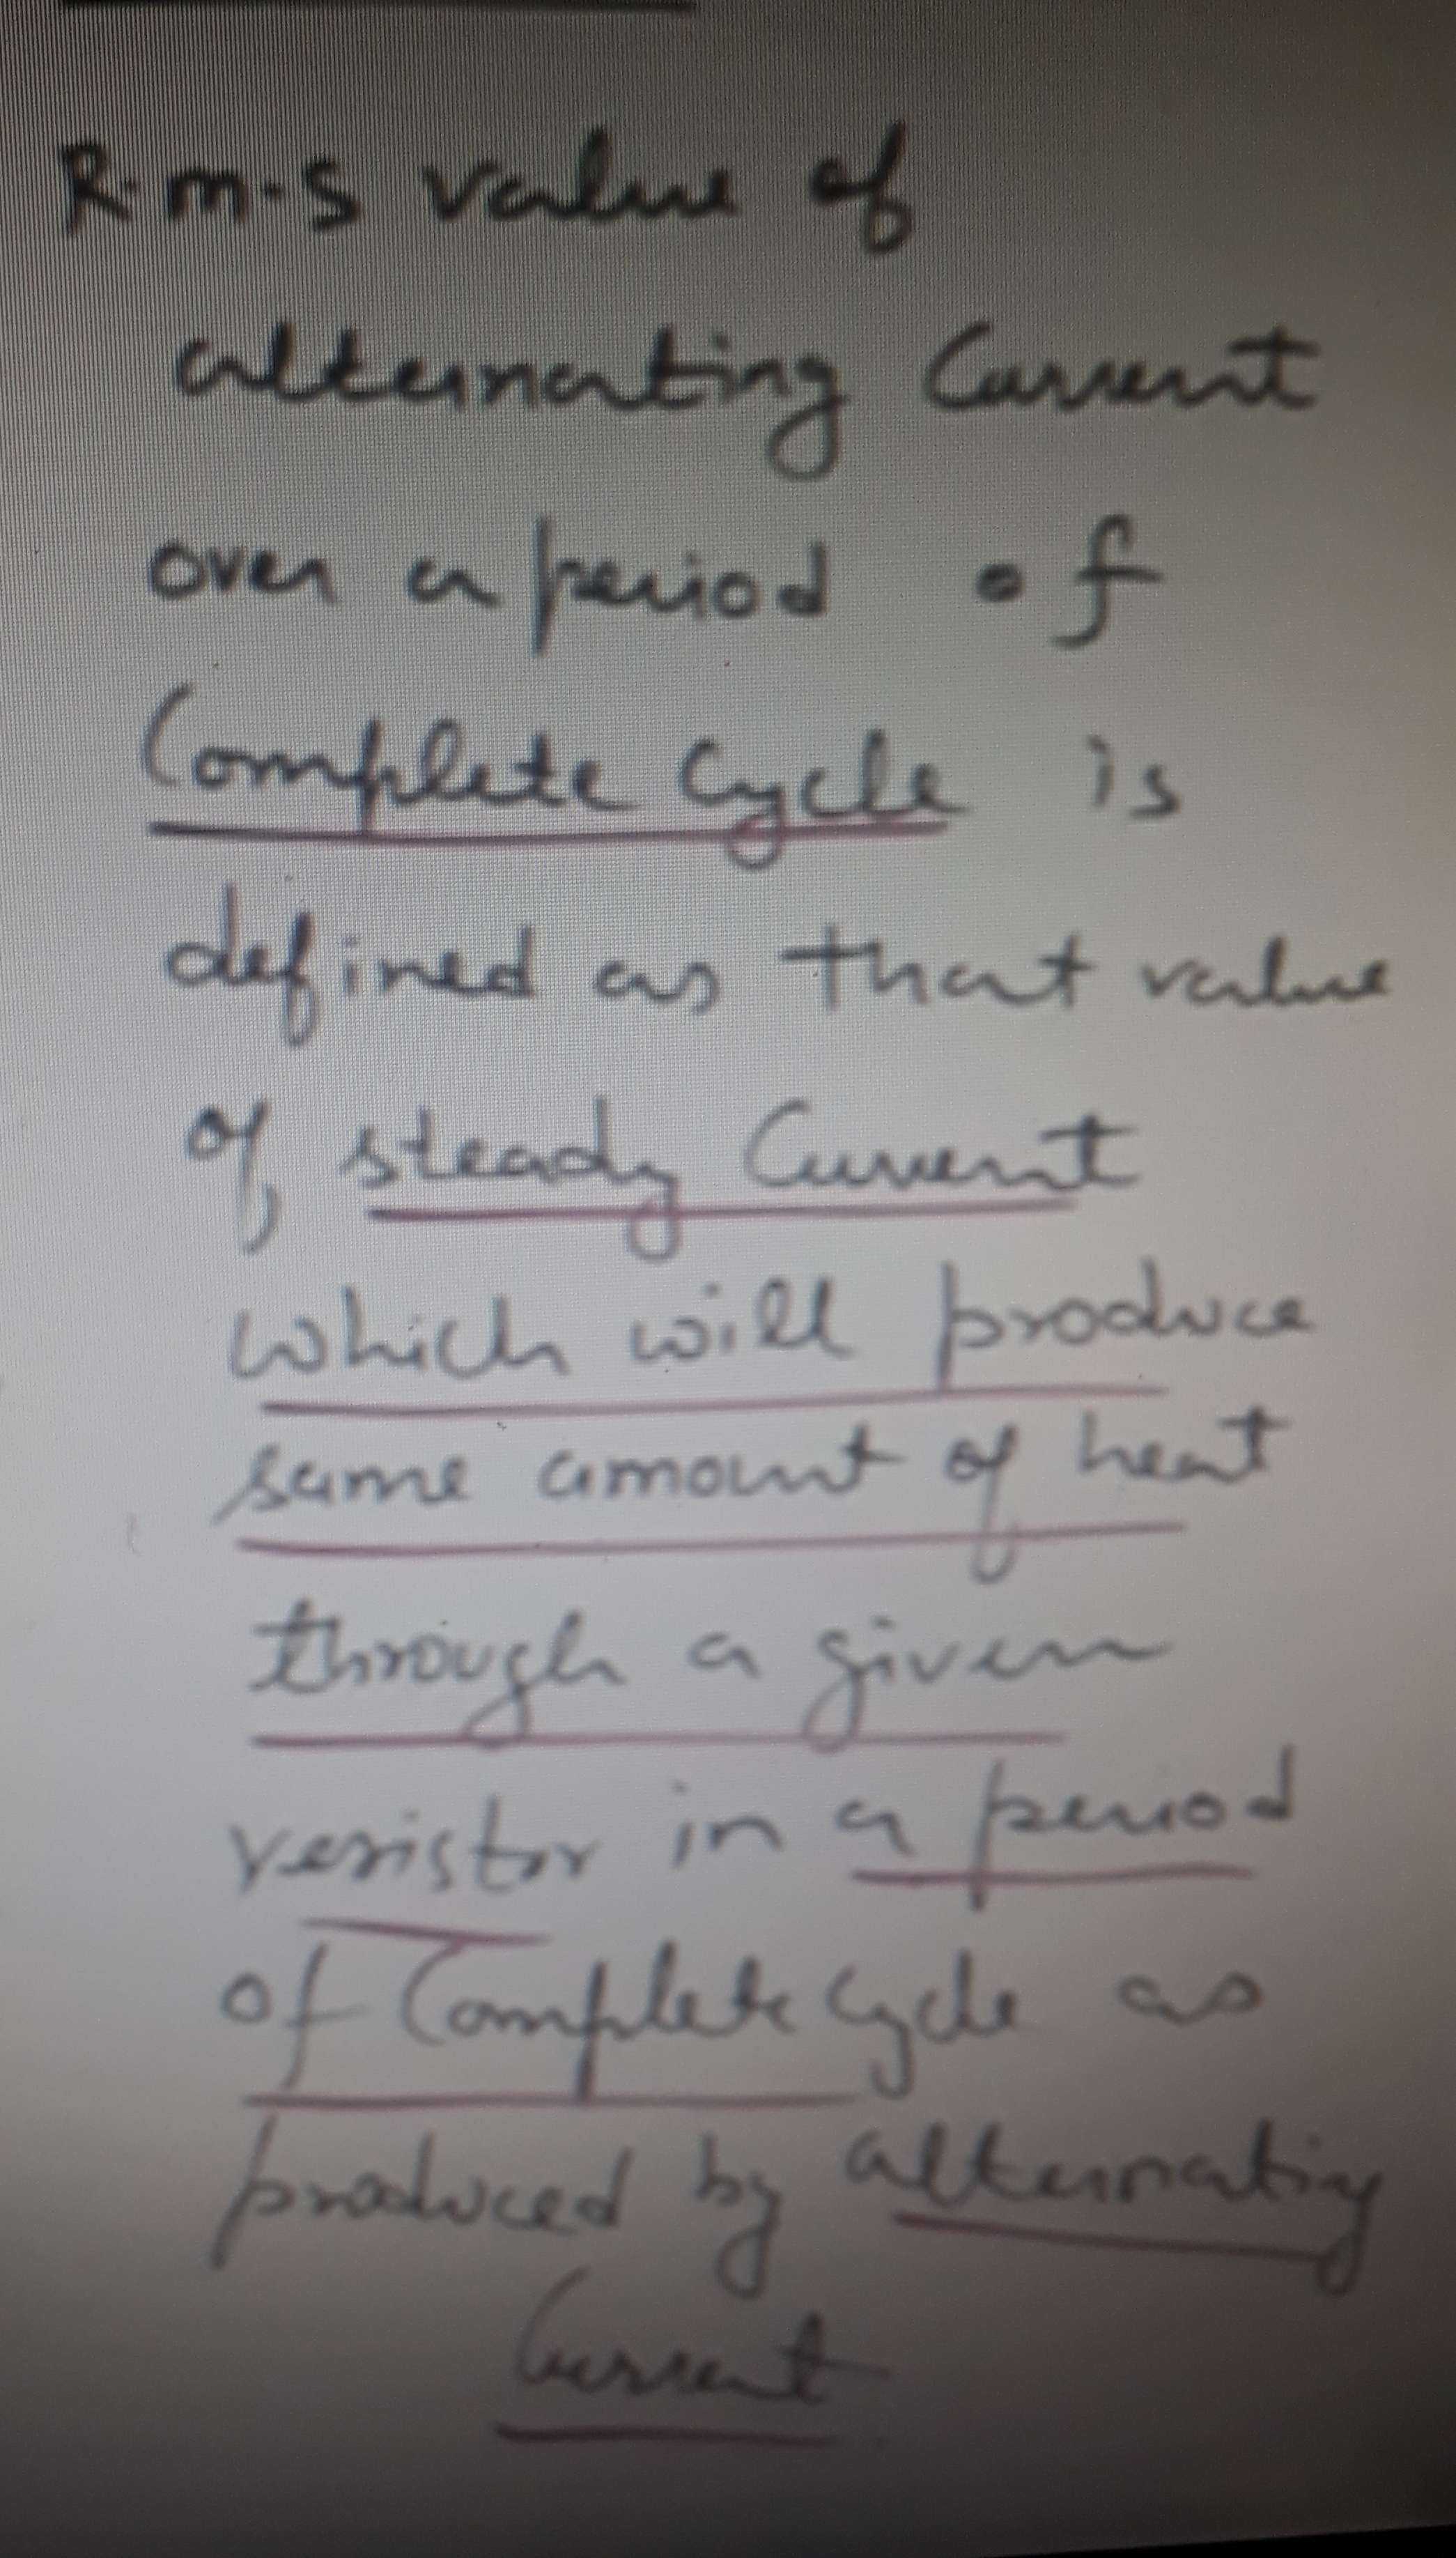 R.m.s value of
alternating Current
over a period of
Complete Cycle is
defined as that value
of, steady Current
which will produce
same amount of heat
through a given
resistor in a period
of Complete Cycle as
produced by alternating
Current